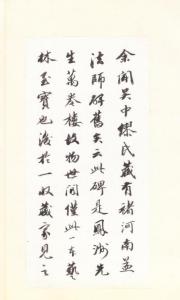 余聞吴中繆氏藏有褚河南孟
法師碑舊矣云此碑是鳳洲先
生萬卷樓故物世間僅此一本藝
林至寶也後於一收藏家見之